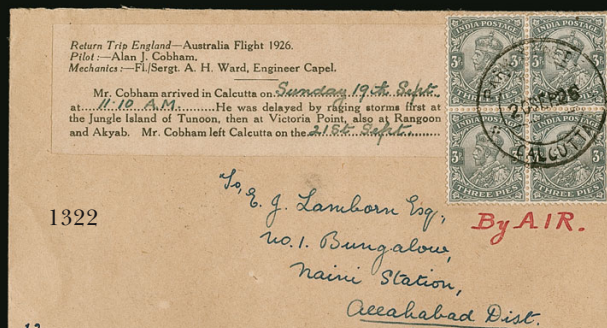 Return Trip England—Australia Flight 1926.
Pilot:—Alan J. Cobham.
Mechanics:—Fl./Sergt. A. H. Ward, Engineer Capel.
Mr. Cobham arrived in Calcutta on Sunday 19th Sept.
at 11·10 A.M. He was delayed by raging storms first at
the Jungle Island of Tunoon, then at Victoria Point, also at Rangoon
and Akyab. Mr. Cobham left Calcutta on the 21st Sept.
INDIA POSTAGE INDIA POSTAGE
3P 3P
THREE PIES
INDIA POSTAGE INDIA POSTAGE
3P 3P
THREE PIES THREE PIES
20 SEP 26
CALCUTTA
To, E. J. Lamborn Esq.,
1322
By AIR.
No. 1. Bungalow,
Naini Station,
Allahabad Dist.